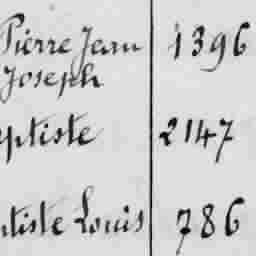 Pierre Jean 1396
Joseph
ptiste 2147
tiste Louis 786